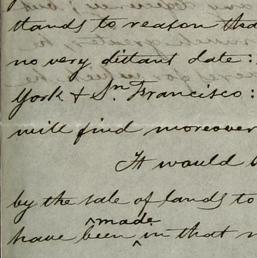 stands to reason that
no very distant date:
York & Sn Francisco:
will find moreover
It would b
by the sale of lands to
made
have been in that